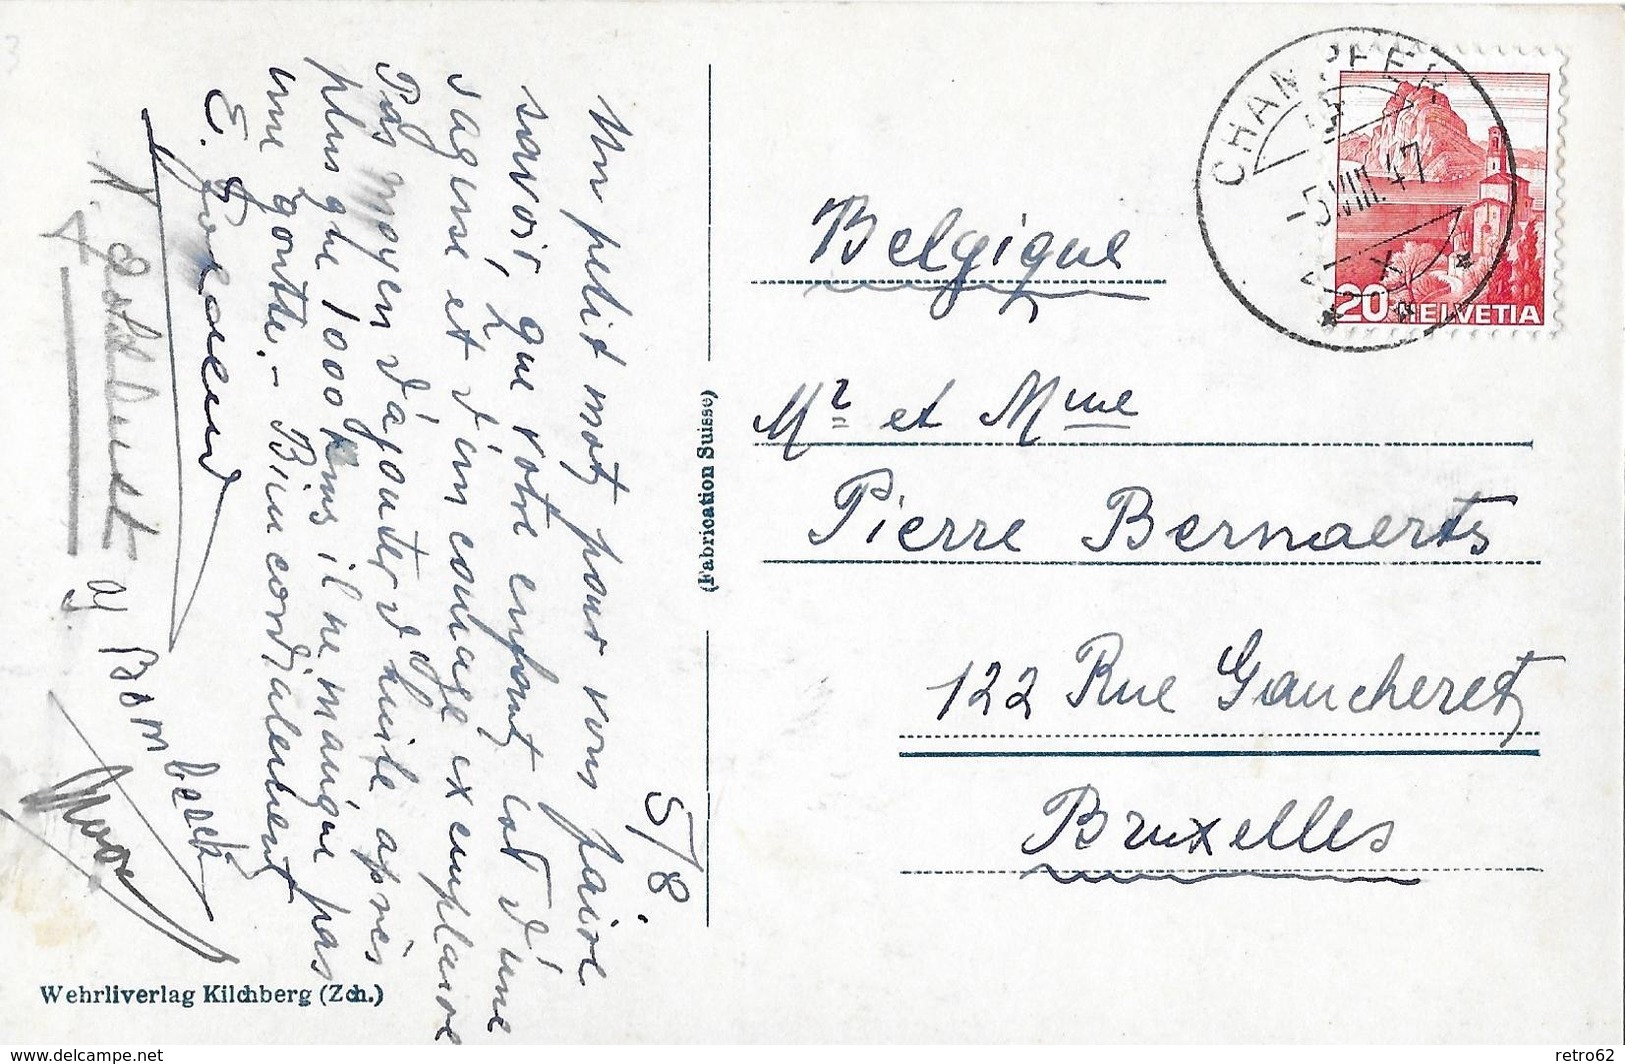 5/8.
Un petit mot, pour vous faire
savoir, que votre enfant est d'une
sagesse et d'un courage exemplaire
Pas moyen d'ajouter d'huile après
plus que 1000 kms il ne manque pas
une goutte. - Bien cordialement
E.
N.
(Fabrication Suisse)
Wehrliverlag Kilchberg (Zch.)
CHAMPFER
-5.VIII.47
20 HELVETIA
Belgique
Mr et Mme
Pierre Bernaerts
122 Rue Gaucheret
Bruxelles
delcampe.net
retro62